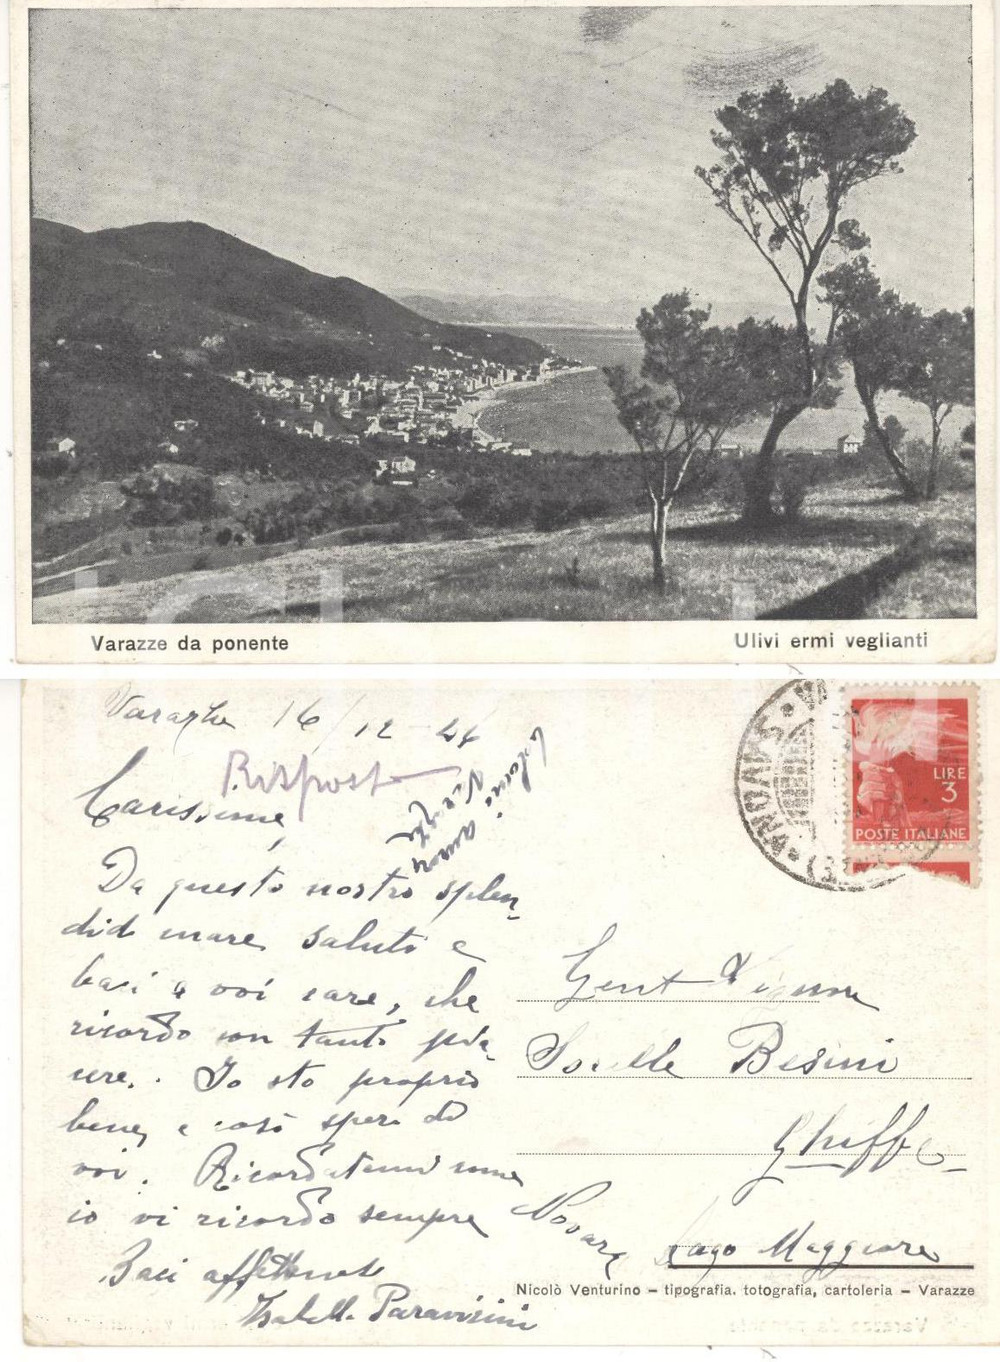 Varazze da ponente
Ulivi ermi veglianti
Varazze 16/12-46
Risposto
Carissime,
Da questo nostro splen-
did mare saluti e
baci a voi care, che
ricordo con tanto pia-
cere. Io sto proprio
bene, e così spero di
voi. Ricordatemi come
io vi ricordo sempre
Baci affettuosi
Isabella Paravisini
LIRE
3
POSTE ITALIANE
Gent Signore
Sorelle Besini
Ghiffa
Novara Lago Maggiore
Nicolò Venturino - tipografia. totografia, cartoleria - Varazze